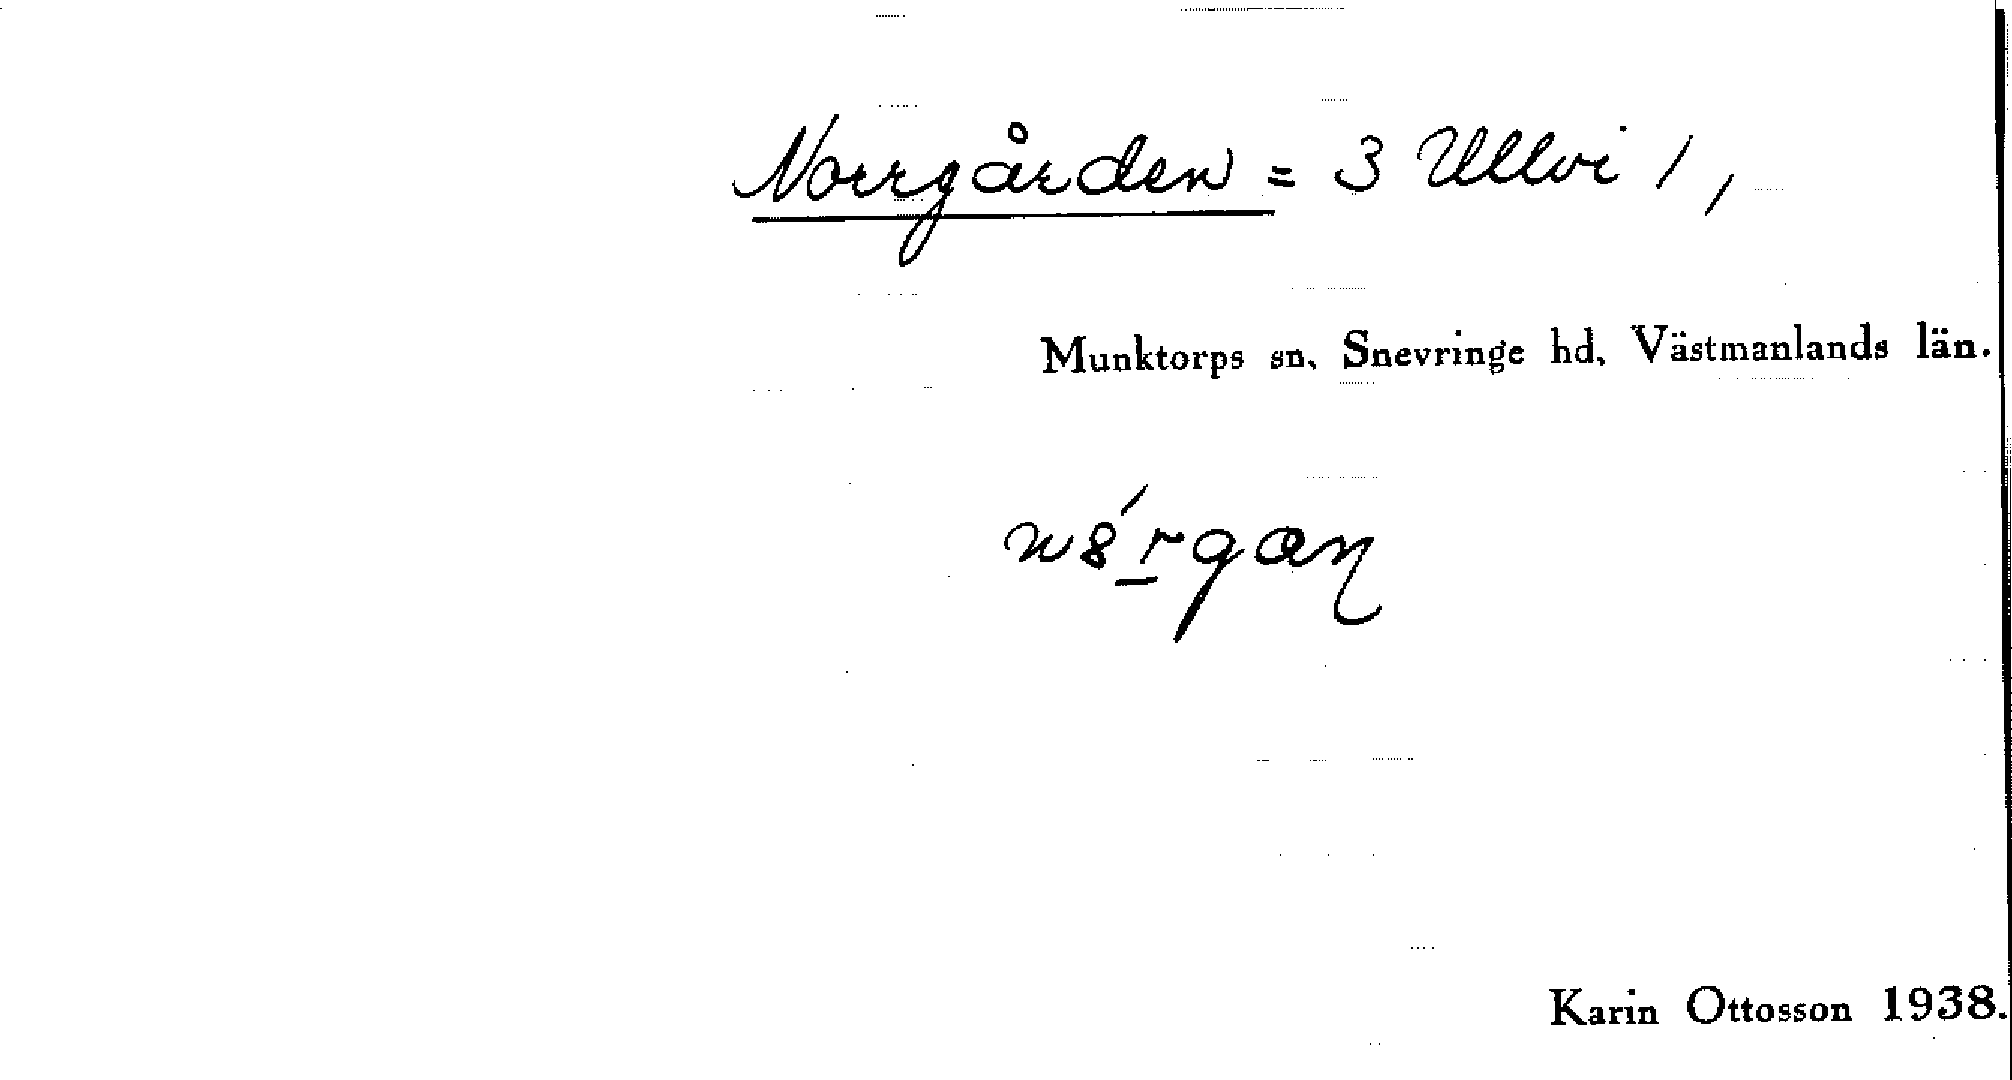 Norrgården = 3 Ullvi 1,
Munktorps sn. Snevringe hd. Västmanlands län.
n8́r̲gaɳ
Karin Ottosson 1938.